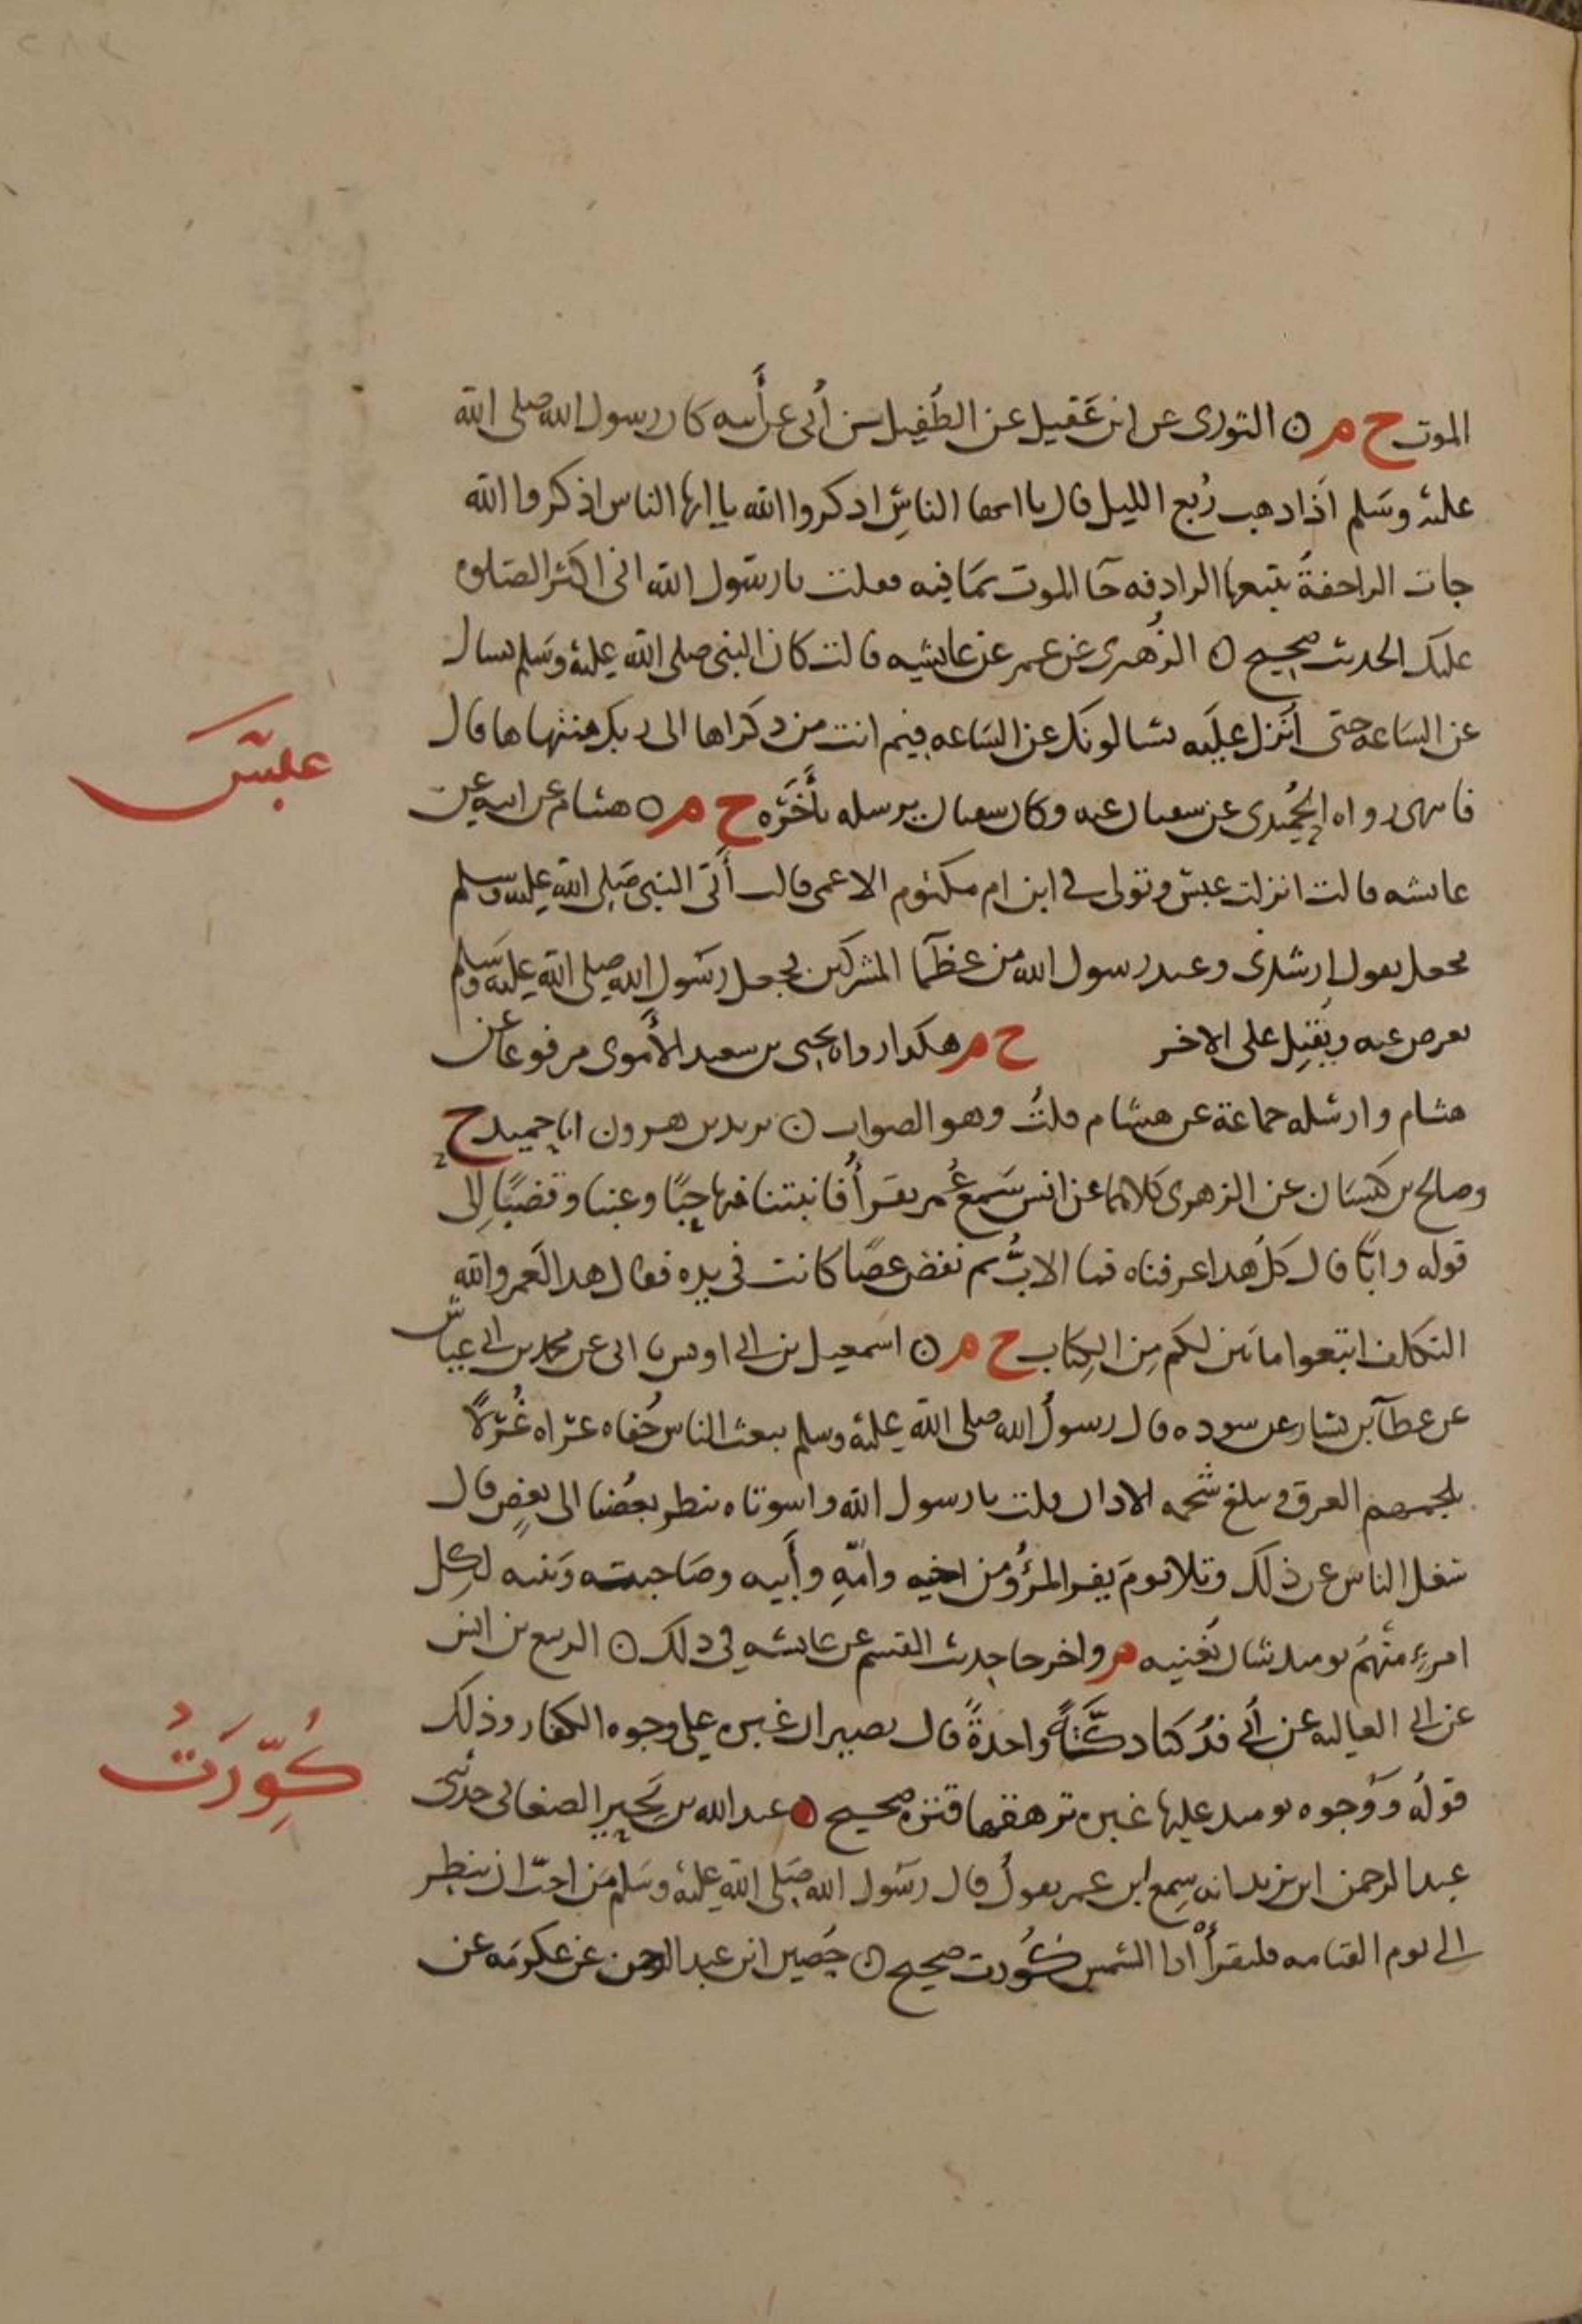 الموت خ م ن الثورى عن ابن عَقيل عن الطُفيل بن أُبى عن أَبيه كان رسول الله صلى الله
عليه وسَلم اذا دهب رُبع الليل قال يا ايها الناسِ ادكروا الله يا ايها الناس اذكروا الله
جات الراجفةُ يتبعها الرادفه جَا الموت بمَا فيه فقلت يا رسَول الله انى اكثر الصَلوه
عليك الحديث صحيح ن الزُهرى عن عمر عن عايشه قالت كان النبى صلى الله عليه وسَلم يسال
عن السَاعه حتى اُنزل عليه يسَالونك عن السَاعه فيم انت من ذكراها الى ربك منتهاها قال
فانتهى رواه الحُميدى عن سفيان عنه وكان سفيان يرسله بأَخَرَه خ م ن هشام عن ابيه عن
عايشه قالت انزلت عبسَ وتولى فى ابن ام مكتوم الاعمى قالت أَتى النبى صَلى الله عليه وسلم
فجعل يقول ارشدنى وعند رسول الله من عظمَا المشركين فجعل رسَول الله صلى الله عليه وسَلم
يعرض عنه ويُقبِل على الاخر خ م هكذا رواه يحيى بن سعيد الأُموى مرفوعا عن
هشام وارسَله جماعة عن هشام قلتُ وهو الصواب ن يزيد بن هرون انا حميد ح
وصالح بن كيسَان عن الزهرى كلاهما عن انس سَمع عُمر يقرأُ فانبتنا فيها حبًا وعنبا وقضبًا إلى
قوله وابًا قال كلُ هذا عرفناه فما الابُّ ثم نفض عصًا كانت فى يده فقال هذا لَعمر والله
التكلف اتبعوا ما تبين لكم مِن الكِتاب خ م ن اسَمعيل بن ابى اويس نا ابى عن محمد بن ابى عياش
عن عطآ بن يسَار عن سوده قال رسولُ الله صلى الله عليه وسلم يبعث الناس حُفاه عراه غُرلًا
يلجمهم العرق ويبلغ شَحمه الاذان قلت يا رسول الله واسوتاه ينظر بعضُنا الى بعضٍ قال
شغل الناس عن ذلك وتلا يومَ يفر المرؤُ من اخيه وامّهِ وأَبيه وصَاحبته وَبنيه لِكل
امرءٍ منهُم يوميد شان يُغنيه م واخرجا حديث القسم عن عايشه فى ذلك ن الربيع بن انس
عن ابى العاليه عن أُبى فدُكتا دكَّةً واحدةً قال يصيران غبره على وجوه الكفار وذلك
قولُه وَوُجوه يوميد عليها غبره ترهقها قتره صحيح ن عبد الله بن بَحِير الصنعانى حدثنى
عبد الرحمن ابن يزيد انه سِمع ابن عمر يقولُ قال رسَول الله صَلى الله عليه وسَلم مَن احبّ ان ينظر
إلى يوم القيامه فليقرأْ اذا الشمس كُورت صحيح ن حُصين ابن عبد الرحمن عن عكرمَه عن
عبسَ
كُوِّرَتْ